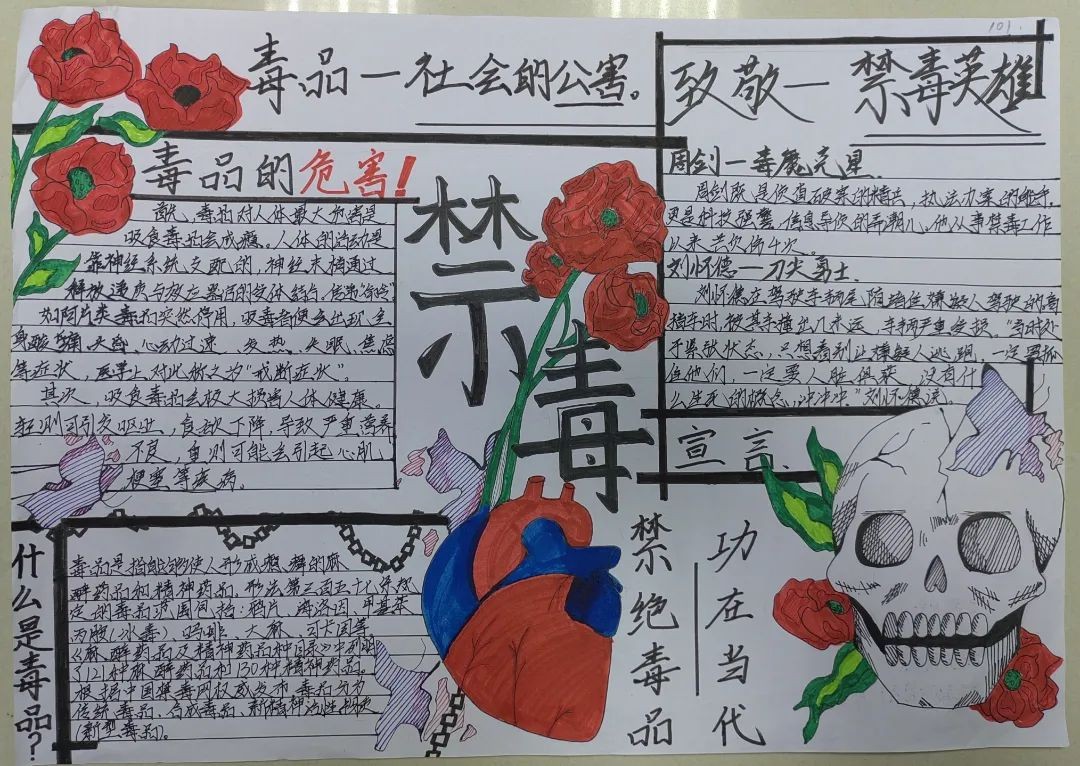 101.
毒品一社会的公害。
毒品的危害!
首先,毒品对人体最大的危害是
吸食毒品会成瘾。人体的活动是
靠神经系统支配的,神经末梢通过
释放递质与效应器后的受体结合,传索
如阿片类毒品突然停用,吸毒者便会出现全
身酸痛、失眠、心动过速、发热、失眠、焦虑
等症状,医学上对此称之为“戒断症状”。
其次,吸食毒品会极大损害人体健康。
轻则可引发呕吐、食欲下降、导致严重营养
不良,重则可能会引起心肌
梗塞等疾病。
什么是毒品?
毒品是指能够使人形成瘾癖的麻
醉药品和精神药品,形法第三百五十七条规
定的毒品范围包括:鸦片、海洛因、甲基苯
丙胺(冰毒)、吗啡、大麻、可卡因等
《麻醉药品及精神药品品种目录》中列明
了121种麻醉药品和130种精神药品。
根据中国禁毒网权威发布 毒品分为
传统毒品、合成毒品、新精神活性物质
(新型毒品)。
禁毒
致敬一禁毒英雄
周剑一毒魔克星
周剑既是侦查破案的精兵,执法办案的能手,
更是科技强警、信息导侦的弄潮儿。他从事禁毒工作
以来
刘怀德一刀尖勇士
刘怀德在驾驶车辆尾随堵住嫌疑人驾驶的高
档车时,被其车撞出几米远,车辆严重受损。“当时处
于紧张状态,只想着别让嫌疑人逃跑,一定要抓
住他们,一定要人赃俱获,没有什
么生死的概念,冲冲冲”刘怀德说
宣言
禁绝毒品
功在当代